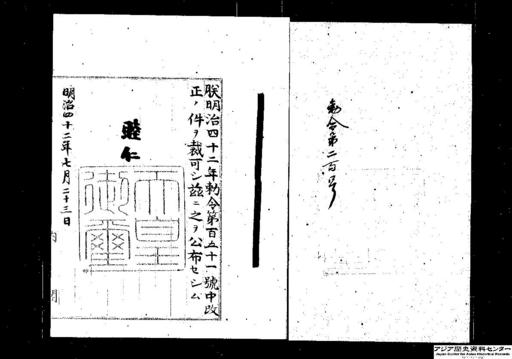 勅令第二百号
朕明治四十二年勅令第百五十一號中改
正ノ件ヲ裁可シ茲ニ之ヲ公布セシム
睦仁
天皇
御璽
明治四十二年七月二十三日
内閣
アジア歴史資料センター
Japan Center for Asian Historical Records